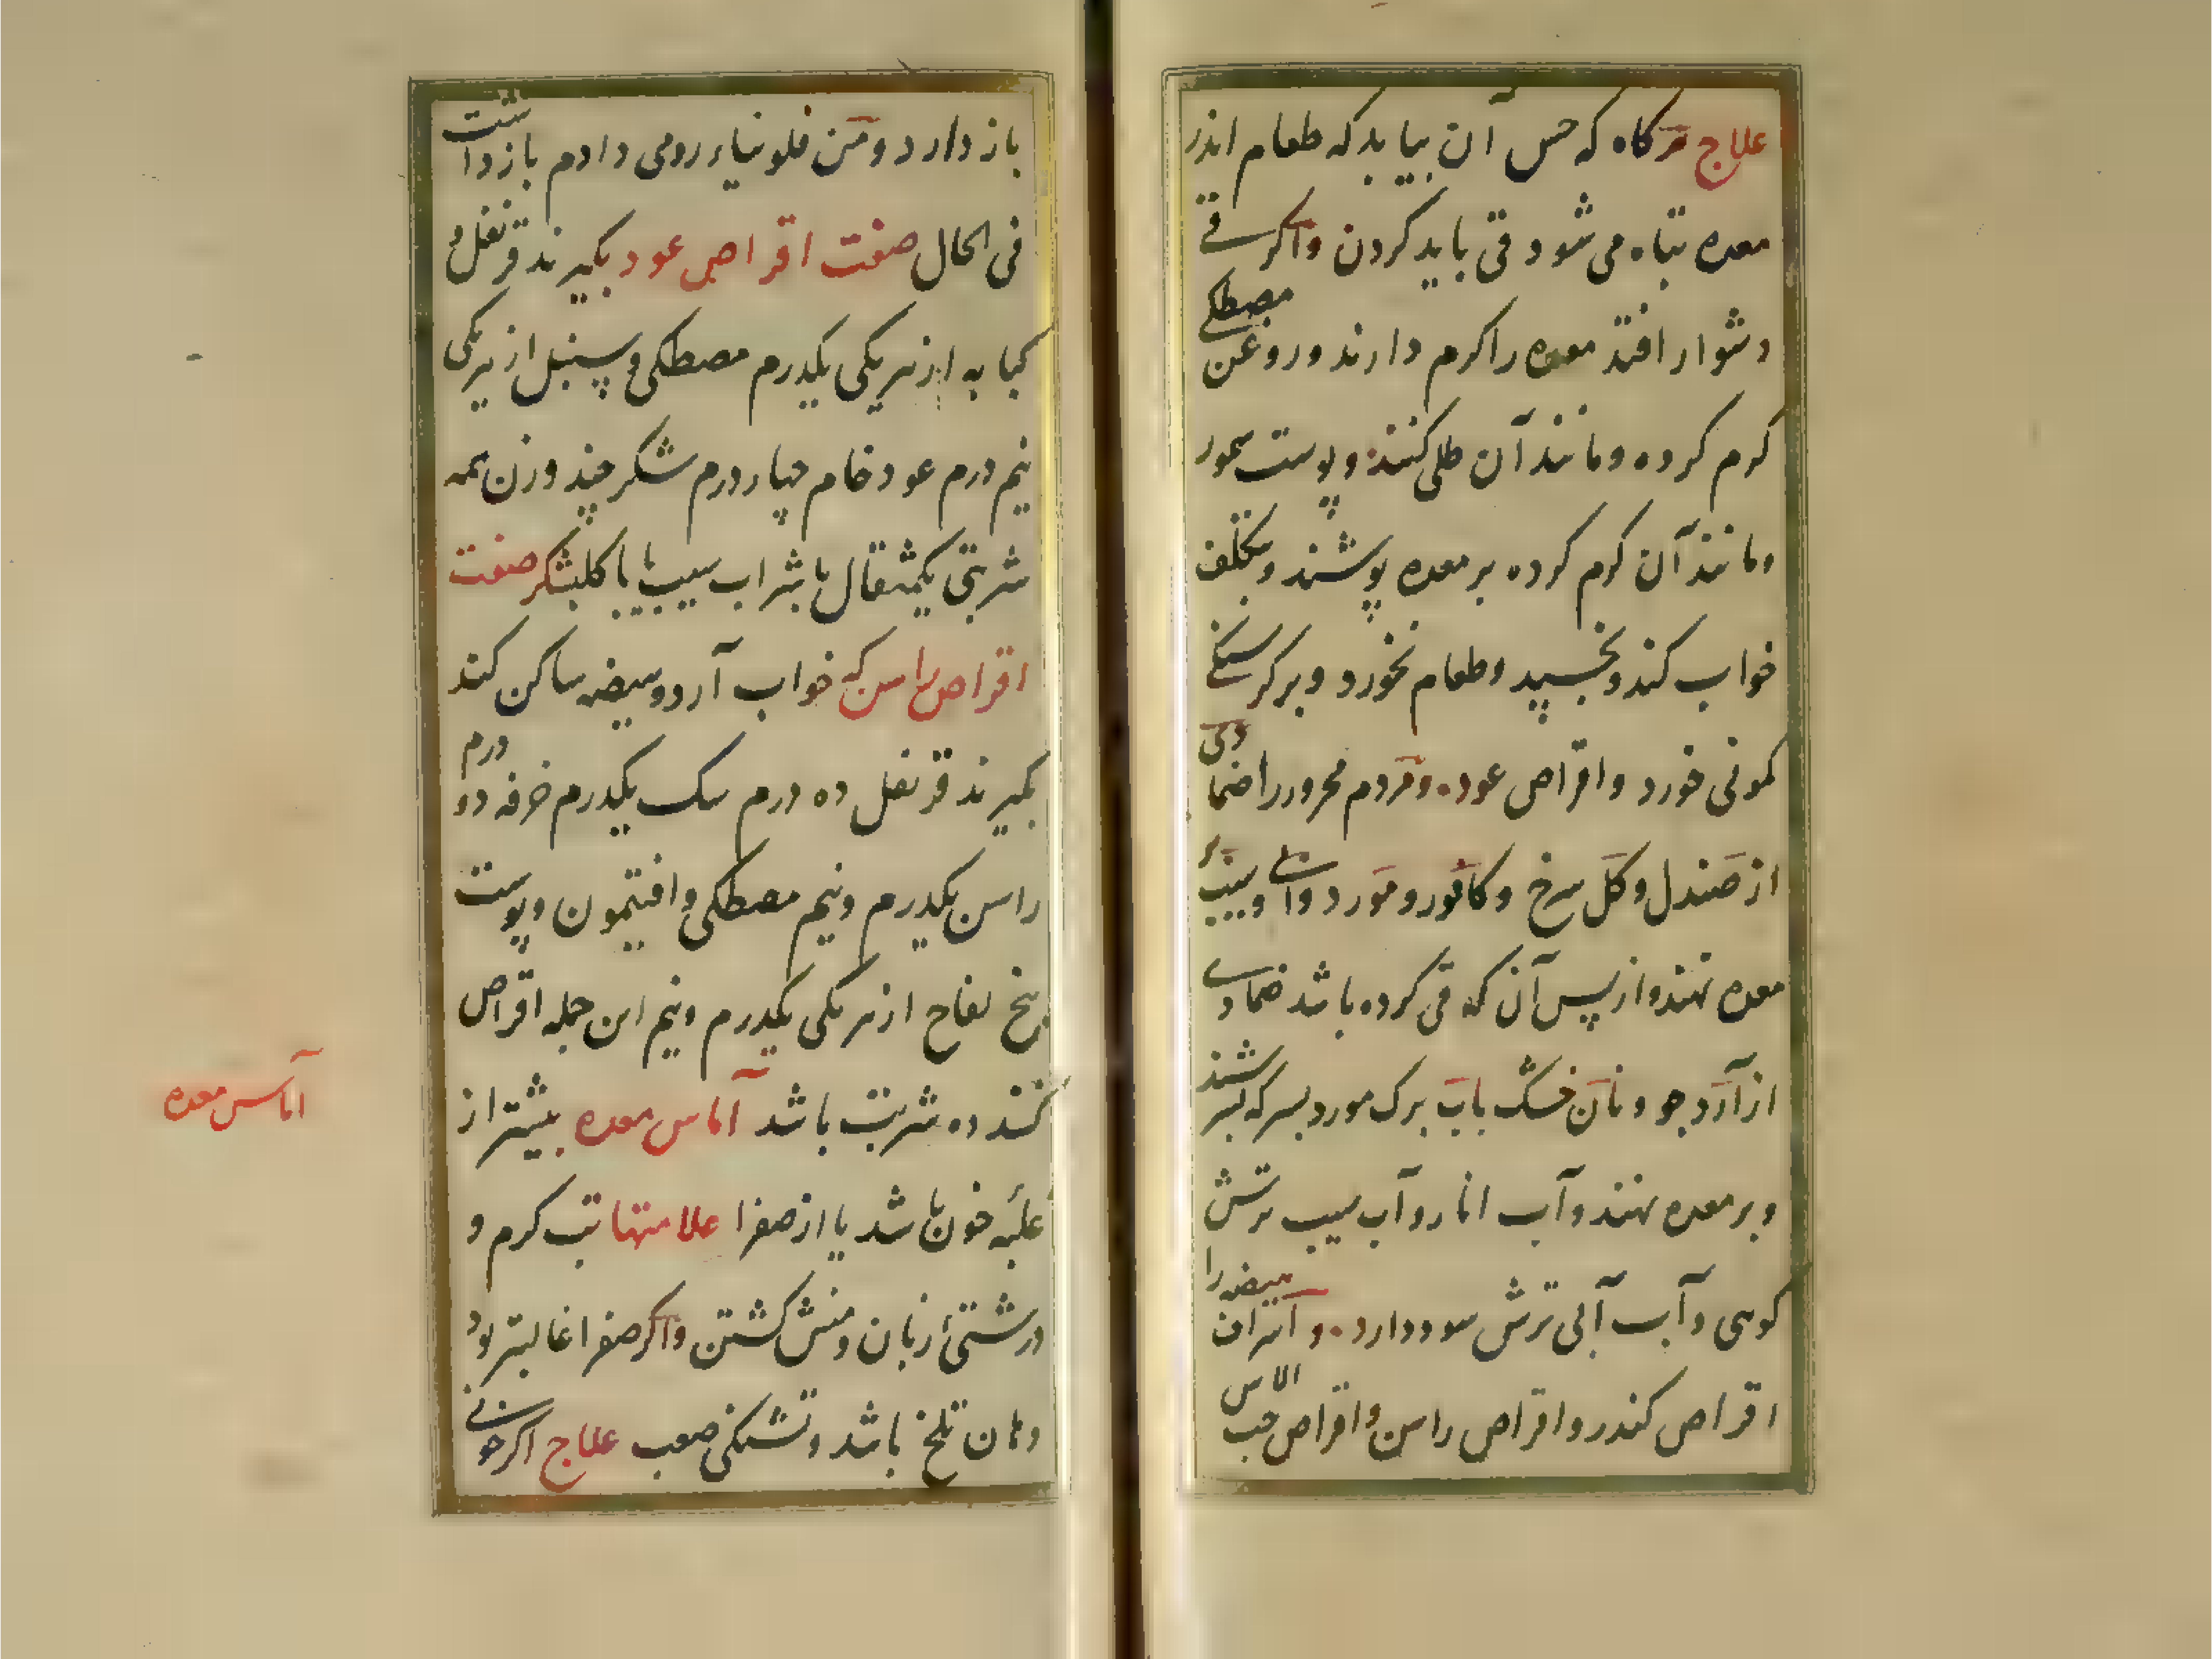 علاج هرکاه که حس آن بیابد که طعام اندر
معده تباه می شود قی باید کردن واکر قے
دشوار افتد معده را کرم دارند وروغن مصطکے
کرم کرده ومانند آن طلی کنند وپوست سمور
ومانند آن کرم کرده بر معده پوشند وبتکلف
خواب کند وبخسپد وطعام نخورد وبر کرسنکے
کمونی خورد واقراص عود ومردم محرور را ضمادی
از صندل وکل سرخ وکافور ومورد وابی وسیب بر
معده نهند واز پس آن که قی کرده باشد ضمادے
از آرد جو ونان خشک باب برک مورد بسرکه بسرشند
وبر معده نهند وآب انار وآب سیب ترش
کوهی وآب آبی ترش سود دارد وآنرا هیضه را
اقراص کندر واقراص راسن واقراص حب الاس
باز دارد ومن فلونیاء رومی دادم باز داشت
فی الحال صفت اقراص عود بکیرند قرنفل و
کبابه از هر یکی یکدرم مصطکی وسنبل از هر یکی
نیم درم عود خام چهار درم شکر چند وزن همه
شربتی یکمثقال با شراب سیب یا با کلبشکر صفت
اقراص راسن که خواب آرد وهیضه ساکن کند
بکیرند قرنفل ده درم سک یکدرم خرفه دو درم
راسن یکدرم ونیم مصطکی وافتیمون وپوست
بیخ لفاح از هر یکی یکدرم ونیم این جمله اقراص
کنند ده شربت باشد آماس معده بیشتر از
غلبه خون باشد یا از صفرا علامتها تب کرم و
درشتئ زبان ومنش کشتن واکر صفرا غالبتر بود
دهان تلخ باشد وتشنکی صعب علاج اکر خونی
آماس معده